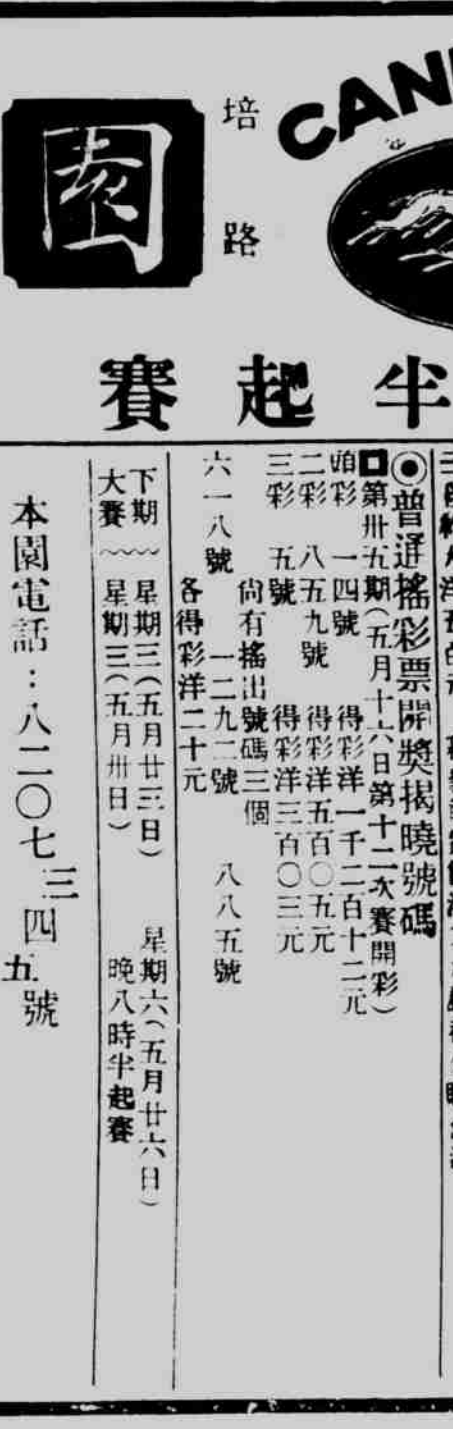 CAN
培
路
園
半起賽
◉普通搖彩票開獎揭曉號碼
第卅五期(五月十六日第十二次賽開彩)
頭彩 一四號 得彩洋一千二百十二元
二彩 八五九號 得彩洋五百〇五元
三彩 五號 得彩洋三百〇三元
尙有搖出號碼三個
六一八號 一二九二號 八八五號
各得彩洋二十元
下期 星期三(五月廿三日) 星期六(五月廿六日)
大賽 星期三(五月卅日) 晚八時半起賽
本園電話:八二〇七三四五號